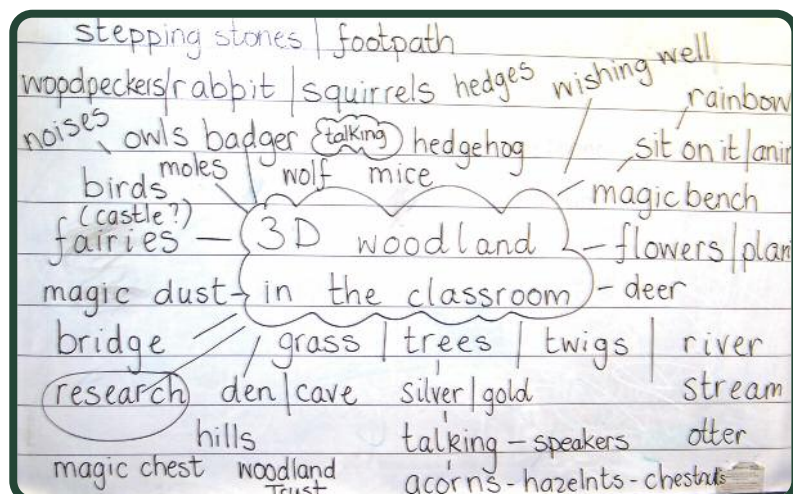 stepping stones | footpath
woodpeckers/rabbit | squirrels hedges wishing well
rainbow
noises owls badger talking hedgehog sit on it | anim
birds moles wolf mice magic bench
(castle?)
fairies — 3D woodland — flowers | plan
magic dust — in the classroom — deer
bridge grass | trees | twigs | river
research den | cave silver | gold stream
hills talking — speakers otter
magic chest woodland acorns - hazelnts - chestnuts
Trust